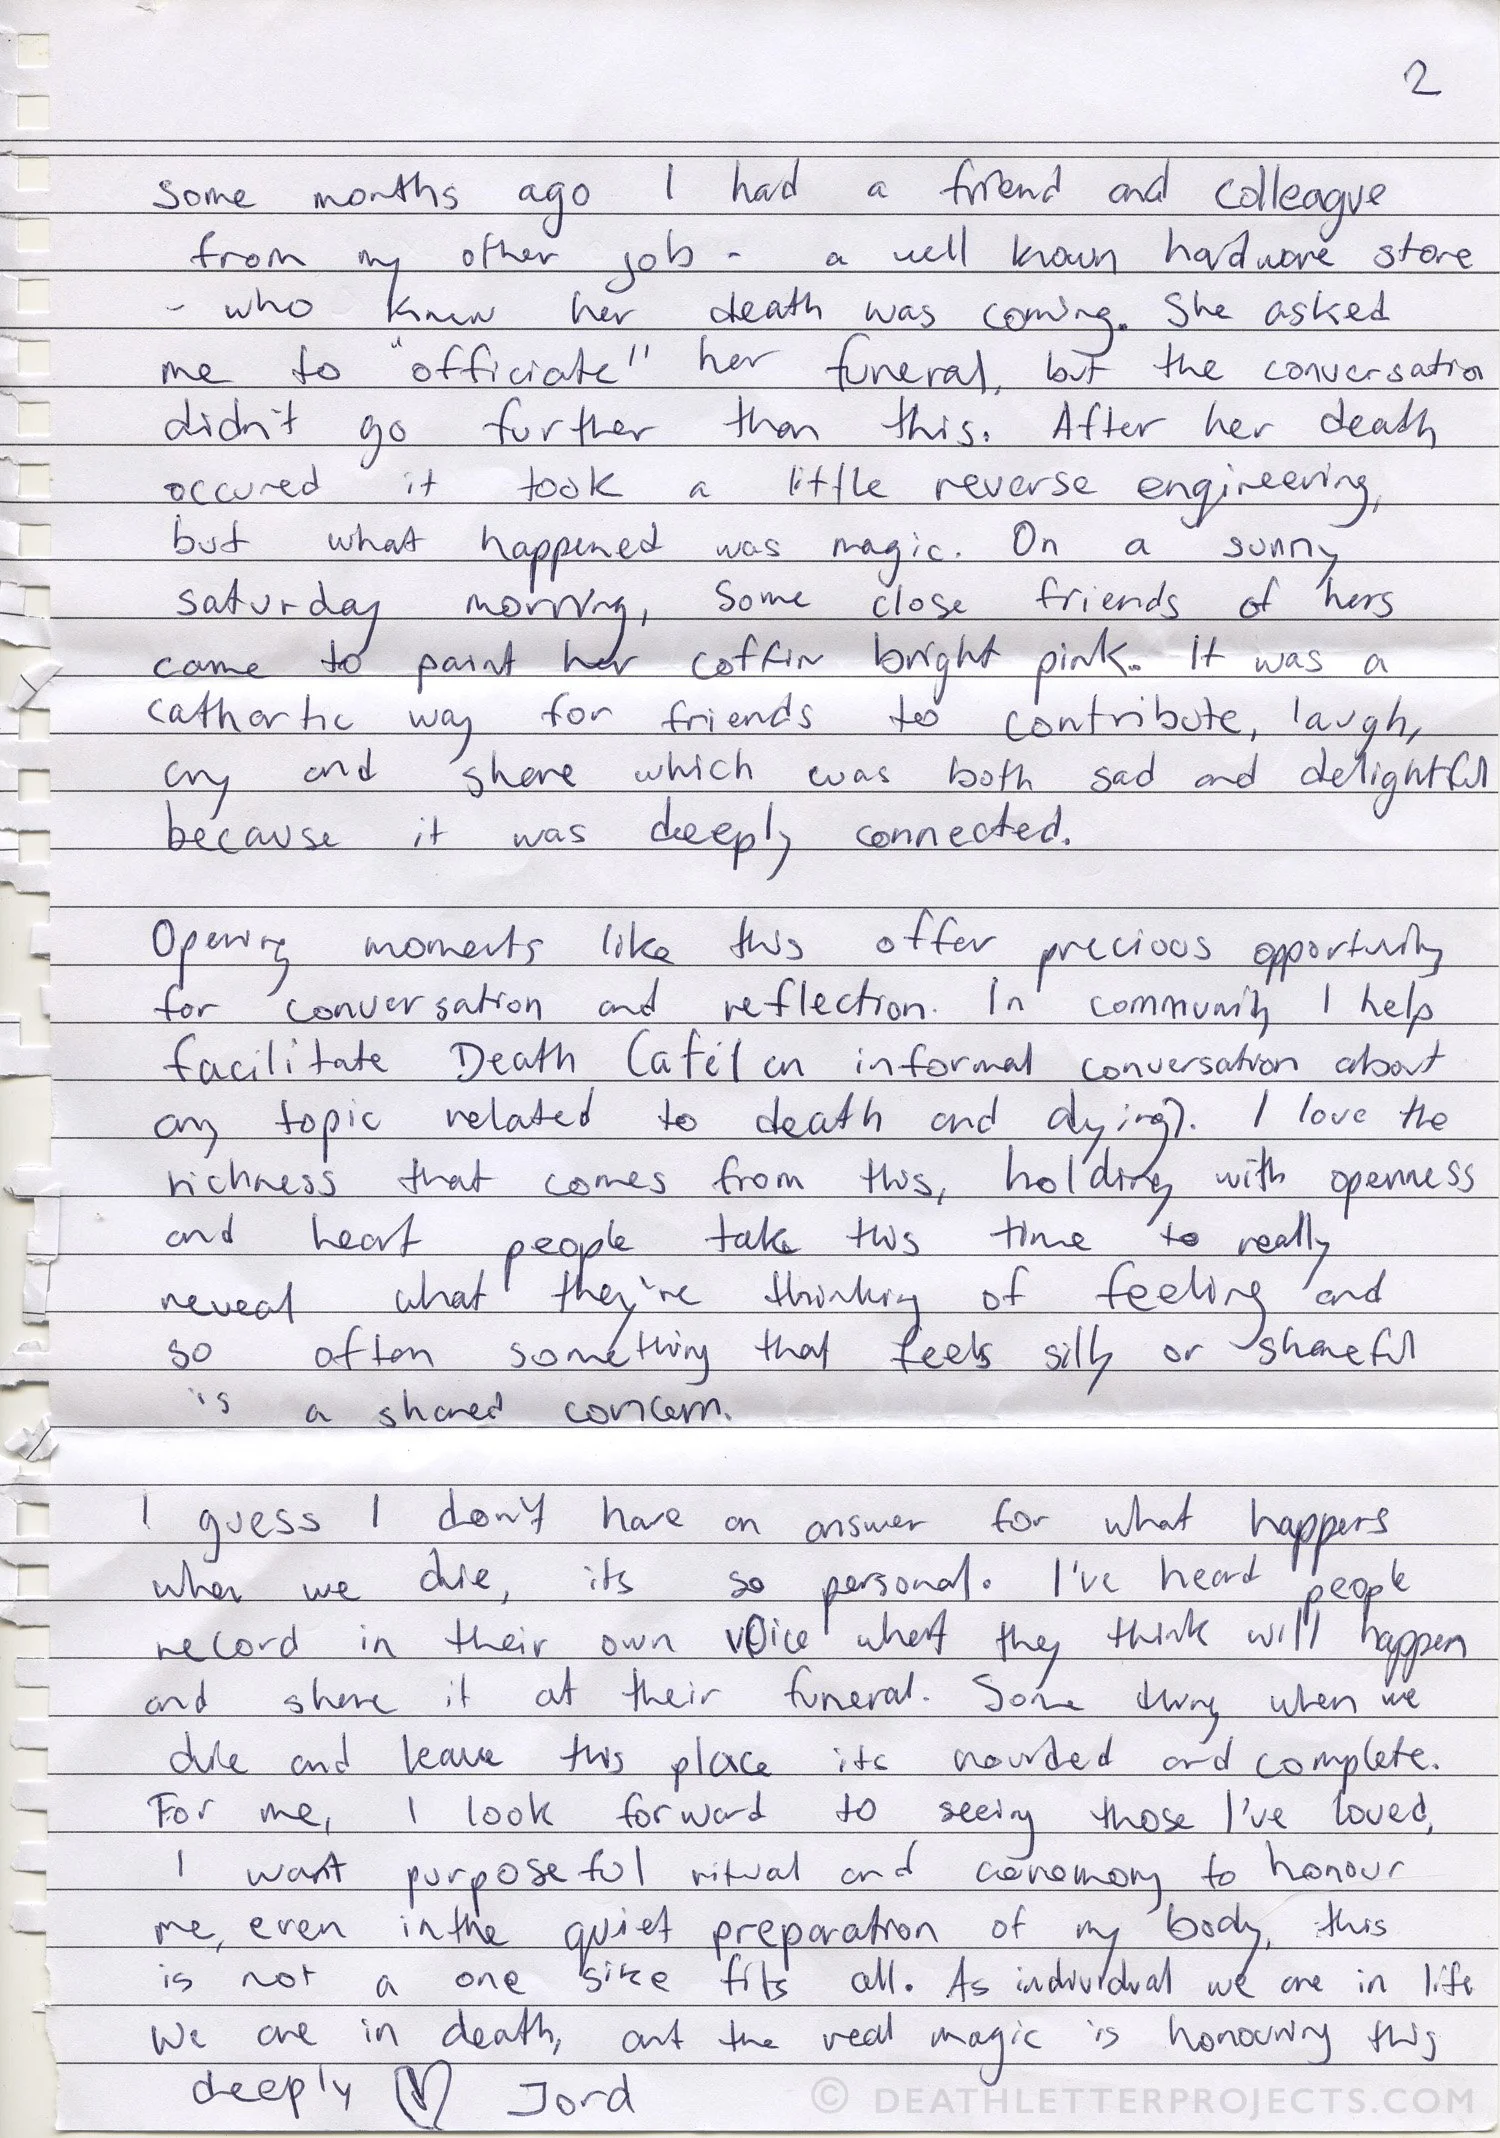 2
Some months ago I had a friend and colleague
from my other job - a well known hardware store
- who knew her death was coming. She asked
me to "officiate" her funeral, but the conversation
didn't go further than this. After her death
occured it took a little reverse engineering,
but what happened was magic. On a sunny
saturday morning, some close friends of hers
came to paint her coffin bright pink. It was a
cathartic way for friends to contribute, laugh,
cry and share which was both sad and delightful
because it was deeply connected.
Opening moments like this offer precious opportunity
for conversation and reflection. In community I help
facilitate Death Café (an informal conversation about
any topic related to death and dying). I love the
richness that comes from this, holding with openness
and heart people take this time to really
reveal what they're thinking of feeling and
so often something that feels silly or shameful
is a shared concern.
I guess I don't have an answer for what happens
when we die, its so personal. I've heard people
record in their own voice what they think will happen
and share it at their funeral. Some thing when we
die and leave this place its rounded and complete.
For me, I look forward to seeing those I've loved,
I want purposeful ritual and ceremony to honour
me, even in the quiet preparation of my body, this
is not a one size fits all. As individual we are in life
we are in death, and the real magic is honouring this
deeply Jord
© DEATHLETTERPROJECTS.COM